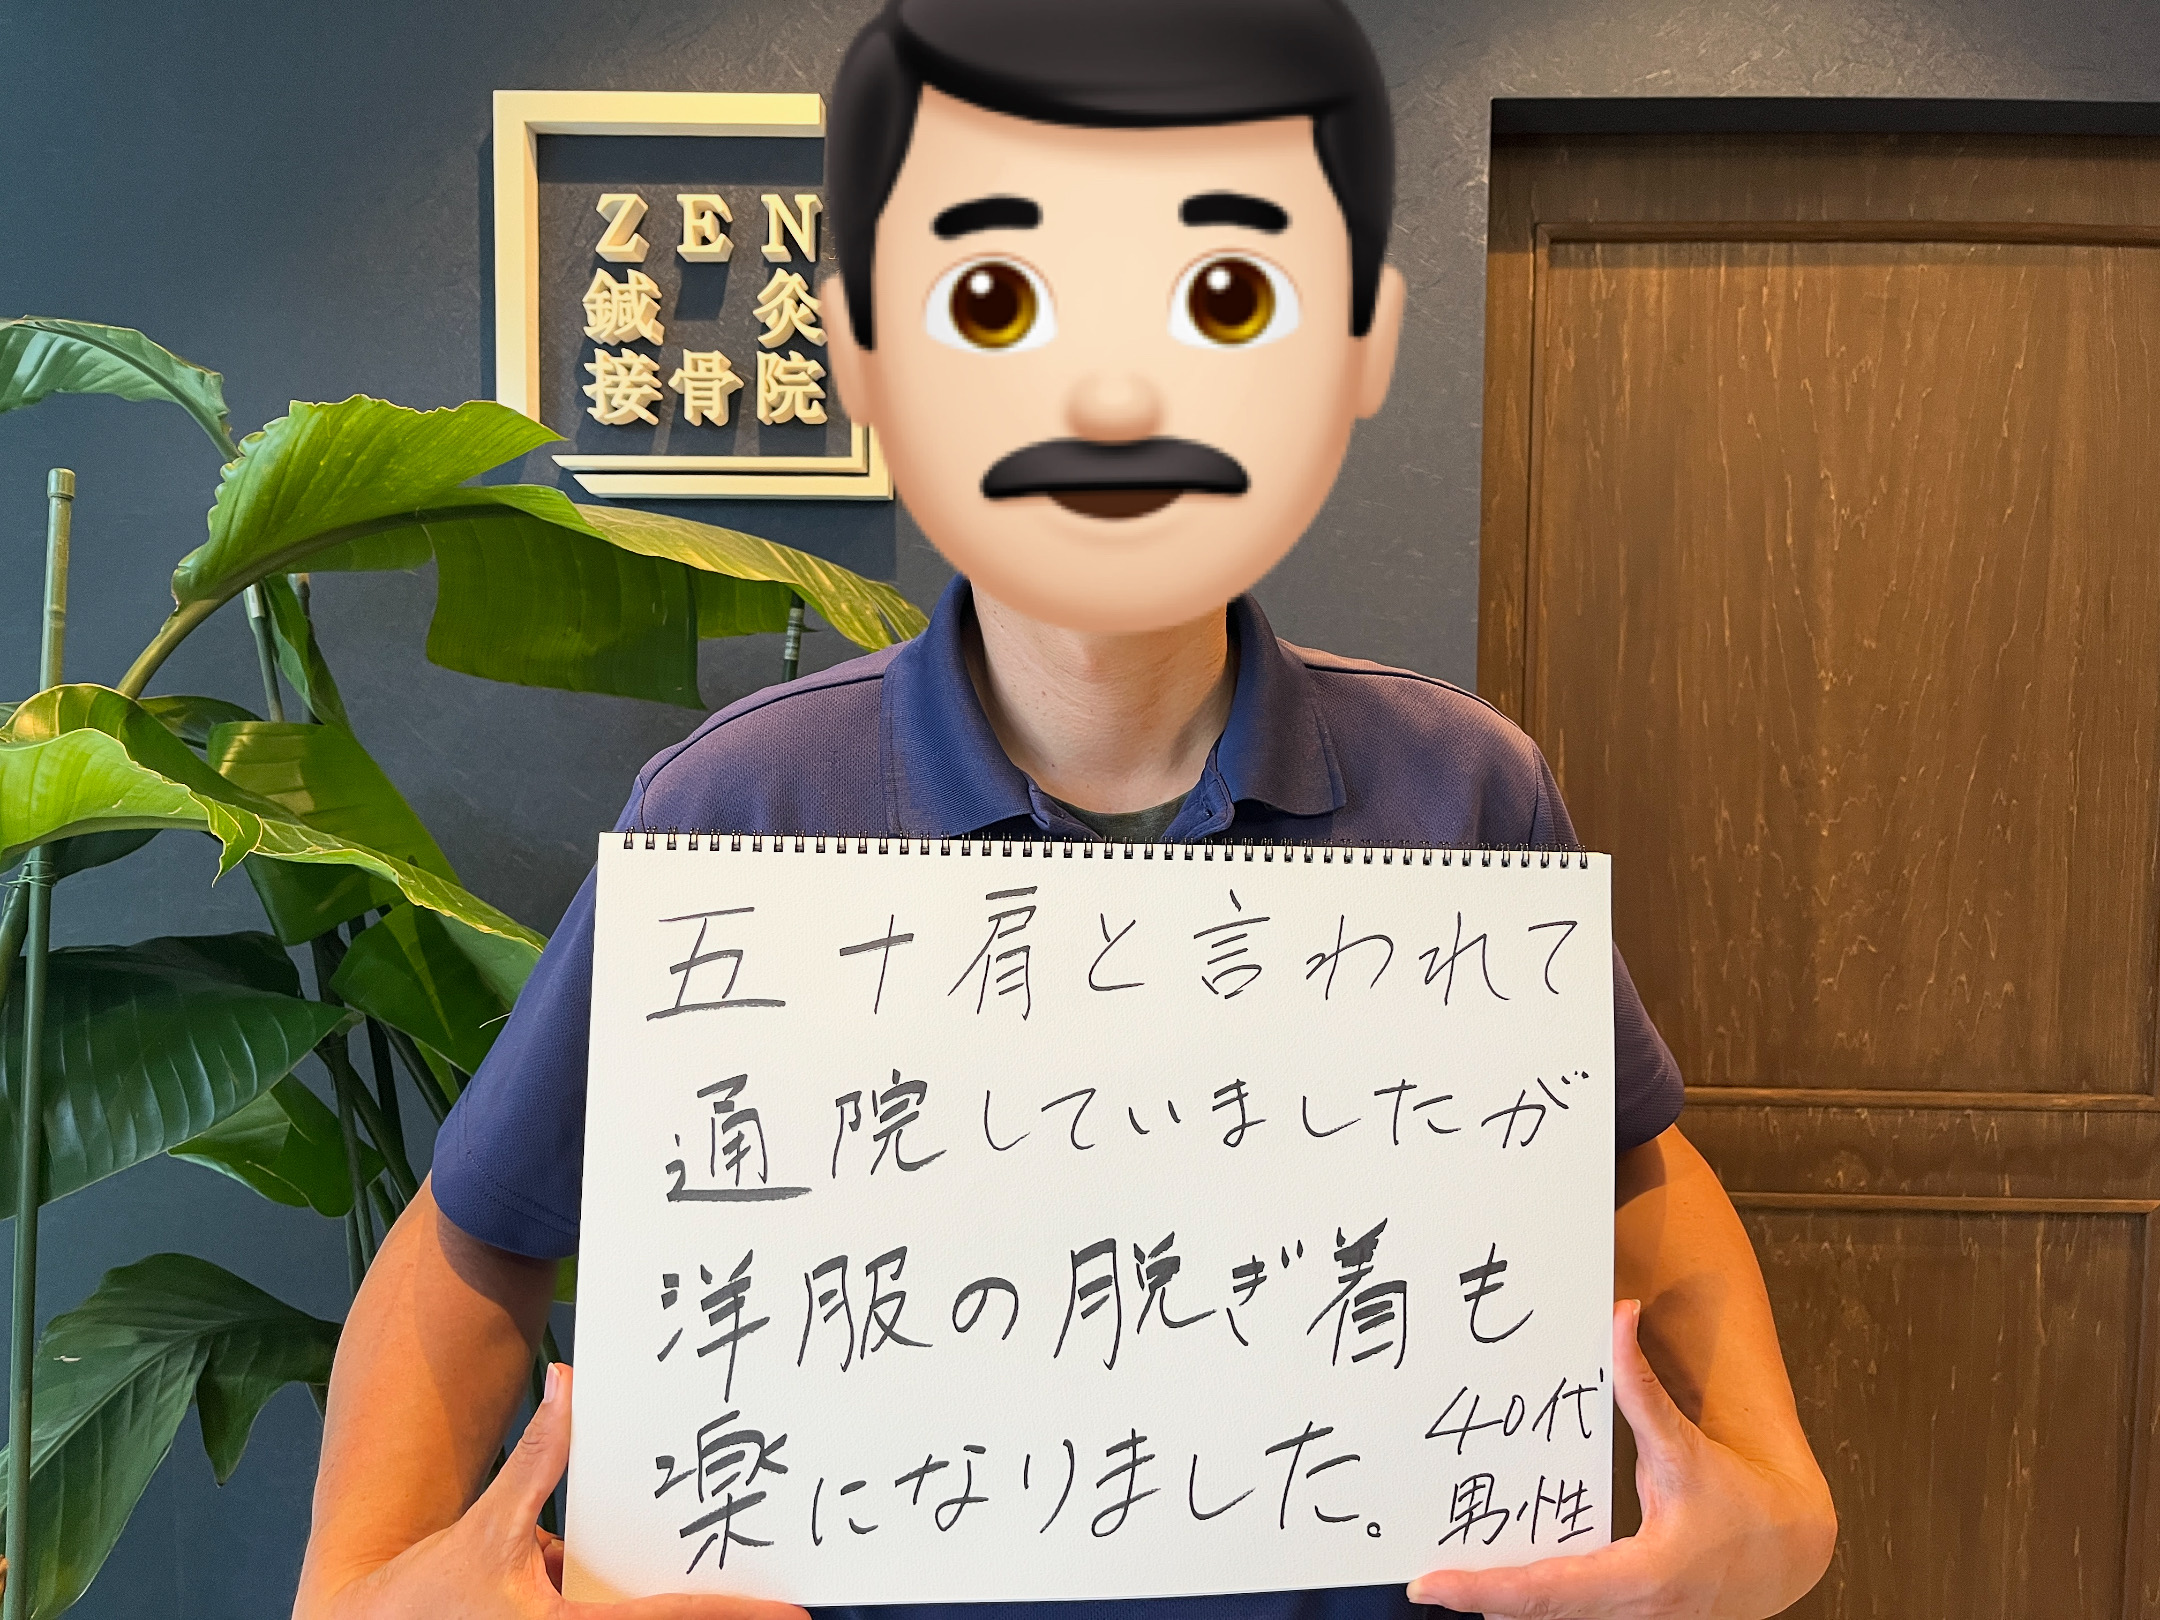 ZEN
鍼灸
接骨院
五十肩と言われて
通院していましたが
洋服の脱ぎ着も
楽になりました。
40代
男性